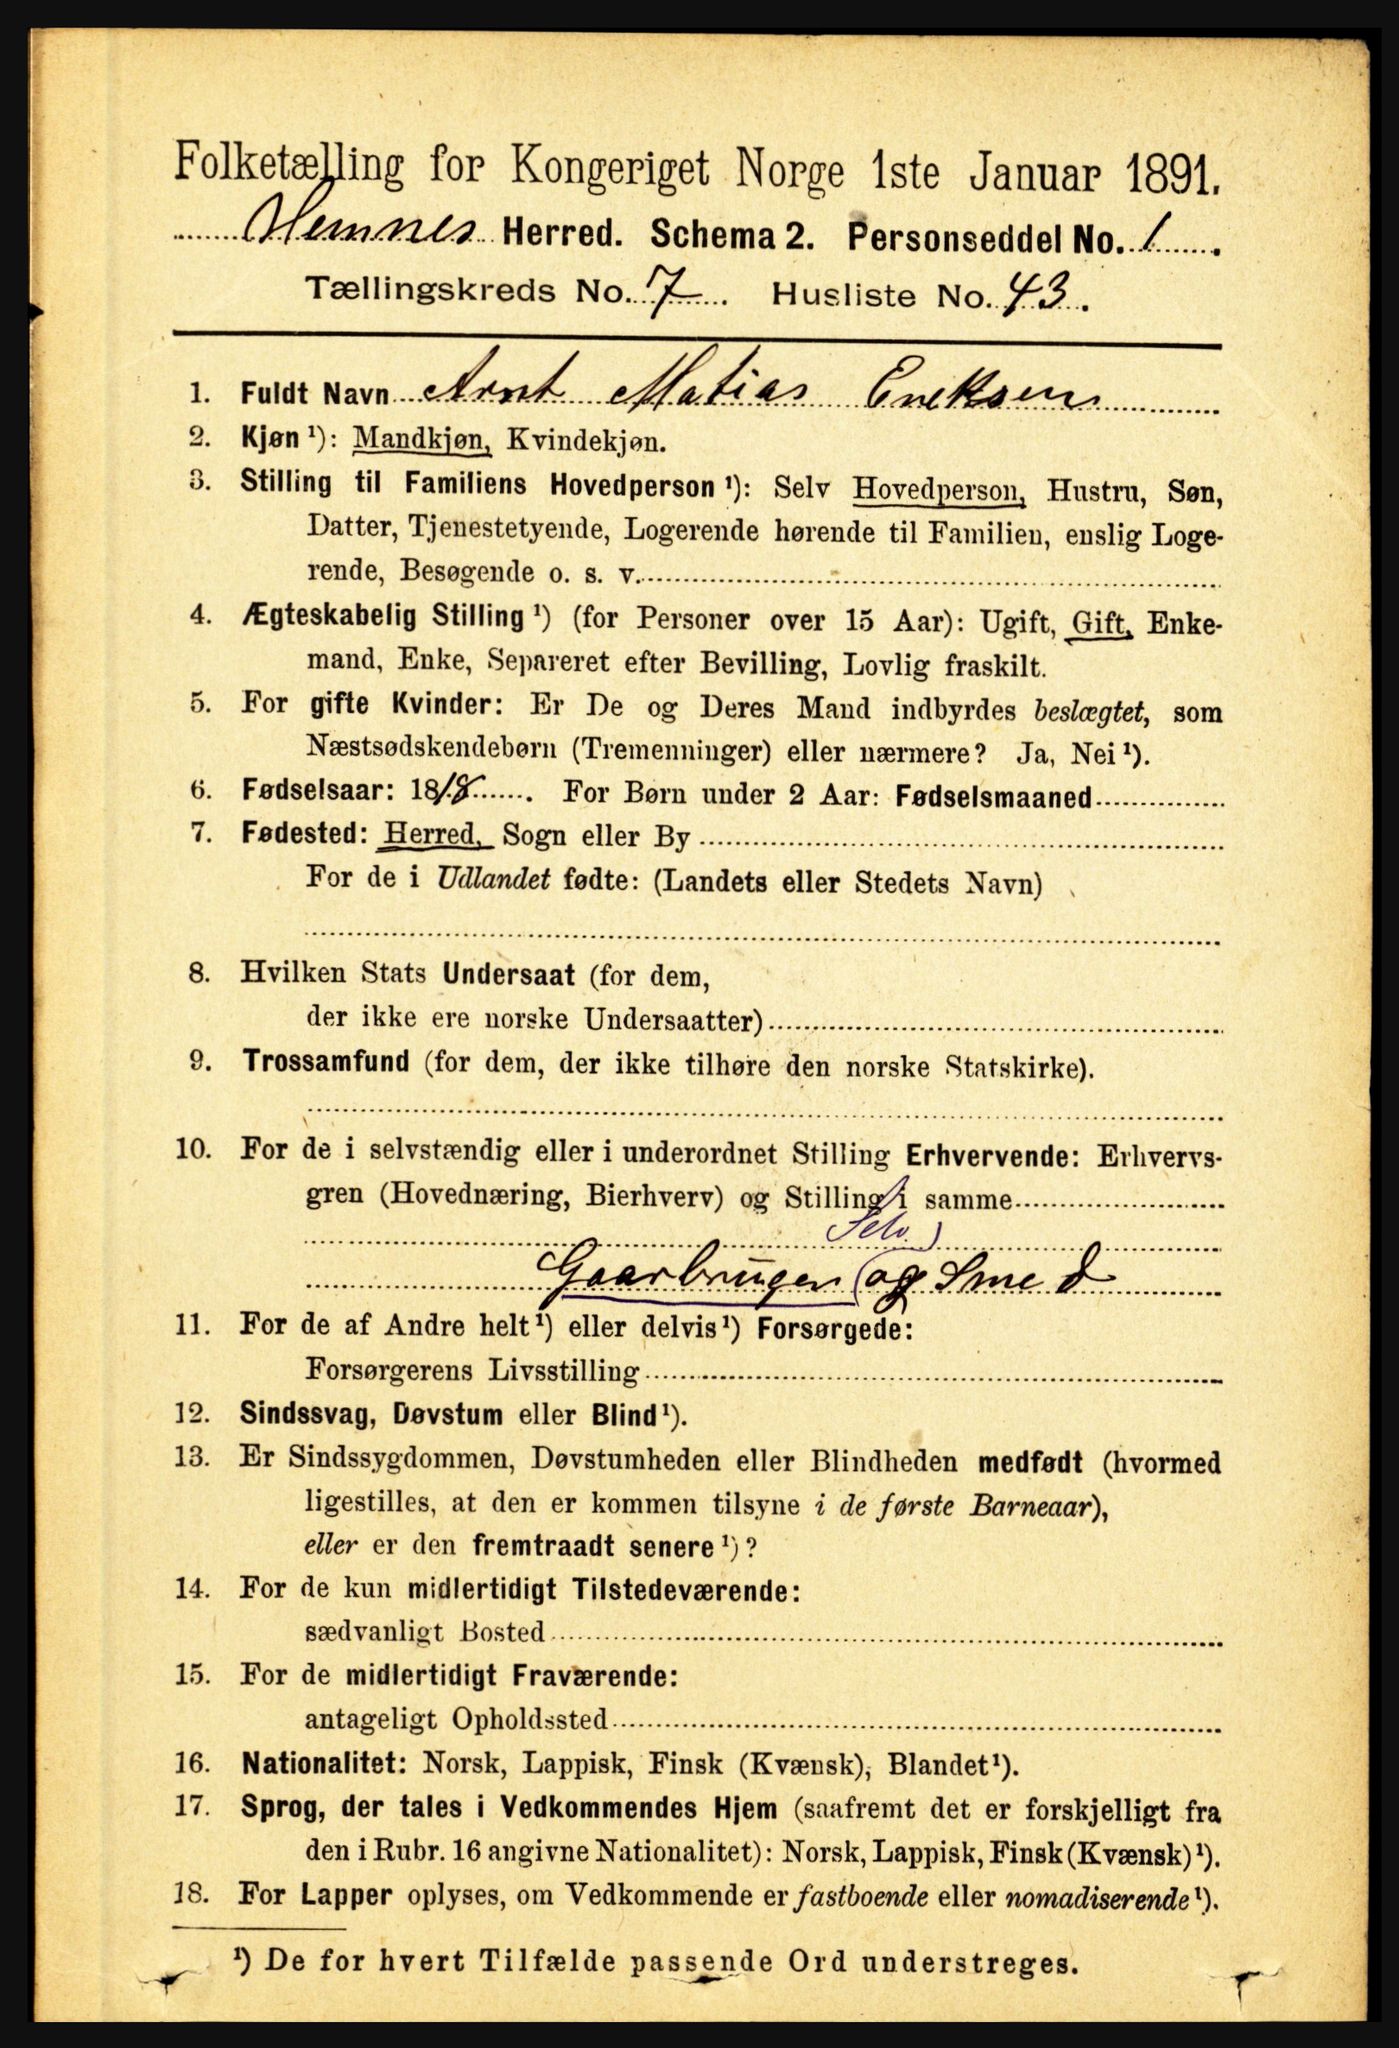 Folketælling for Kongeriget Norge 1ste Januar 1891.
Hemnes Herred. Schema 2. Personseddel No. 1.
Tællingskreds No. 7. Husliste No. 43.
1. Fuldt Navn Arnt Matias Ereksen
2. Kjøn ¹): Mandkjøn, Kvindekjøn.
3. Stilling til Familiens Hovedperson ¹): Selv Hovedperson, Hustru, Søn,
Datter, Tjenestetyende, Logerende hørende til Familien, enslig Loge-
rende, Besøgende o. s. v.
4. Ægteskabelig Stilling ¹) (for Personer over 15 Aar): Ugift, Gift, Enke-
mand, Enke, Separeret efter Bevilling, Lovlig fraskilt.
5. For gifte Kvinder: Er De og Deres Mand indbyrdes beslægtet, som
Næstsødskendebørn (Tremenninger) eller nærmere? Ja, Nei ¹).
6. Fødselsaar: 1818. For Børn under 2 Aar: Fødselsmaaned
7. Fødested: Herred, Sogn eller By
For de i Udlandet fødte: (Landets eller Stedets Navn)
8. Hvilken Stats Undersaat (for dem,
der ikke ere norske Undersaatter)
9. Trossamfund (for dem, der ikke tilhøre den norske Statskirke).
10. For de i selvstændig eller i underordnet Stilling Erhvervende: Erhvervs-
gren (Hovednæring, Bierhverv) og Stilling i samme
Selv
Gaarbruger (og Smed
11. For de af Andre helt ¹) eller delvis ¹) Forsørgede:
Forsørgerens Livsstilling
12. Sindssvag, Døvstum eller Blind ¹).
13. Er Sindssygdommen, Døvstumheden eller Blindheden medfødt (hvormed
ligestilles, at den er kommen tilsyne i de første Barneaar),
eller er den fremtraadt senere ¹)?
14. For de kun midlertidigt Tilstedeværende:
sædvanligt Bosted
15. For de midlertidigt Fraværende:
antageligt Opholdssted
16. Nationalitet: Norsk, Lappisk, Finsk (Kvænsk), Blandet ¹).
17. Sprog, der tales i Vedkommendes Hjem (saafremt det er forskjelligt fra
den i Rubr. 16 angivne Nationalitet): Norsk, Lappisk, Finsk (Kvænsk) ¹).
18. For Lapper oplyses, om Vedkommende er fastboende eller nomadiserende ¹).
¹) De for hvert Tilfælde passende Ord understreges.